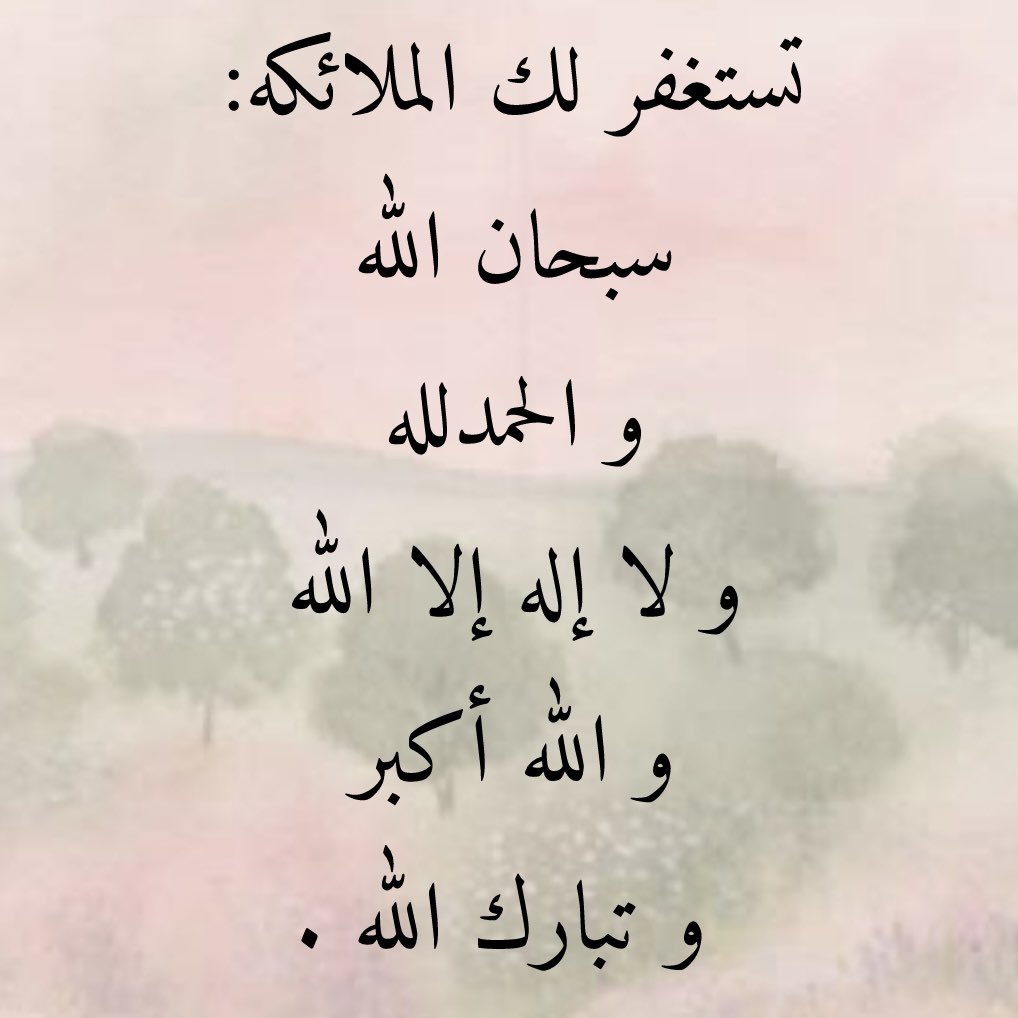 تستغفر لك الملائكه:
سبحان الله
و الحمدلله
و لا إله إلا الله
و الله أكبر
و تبارك الله .